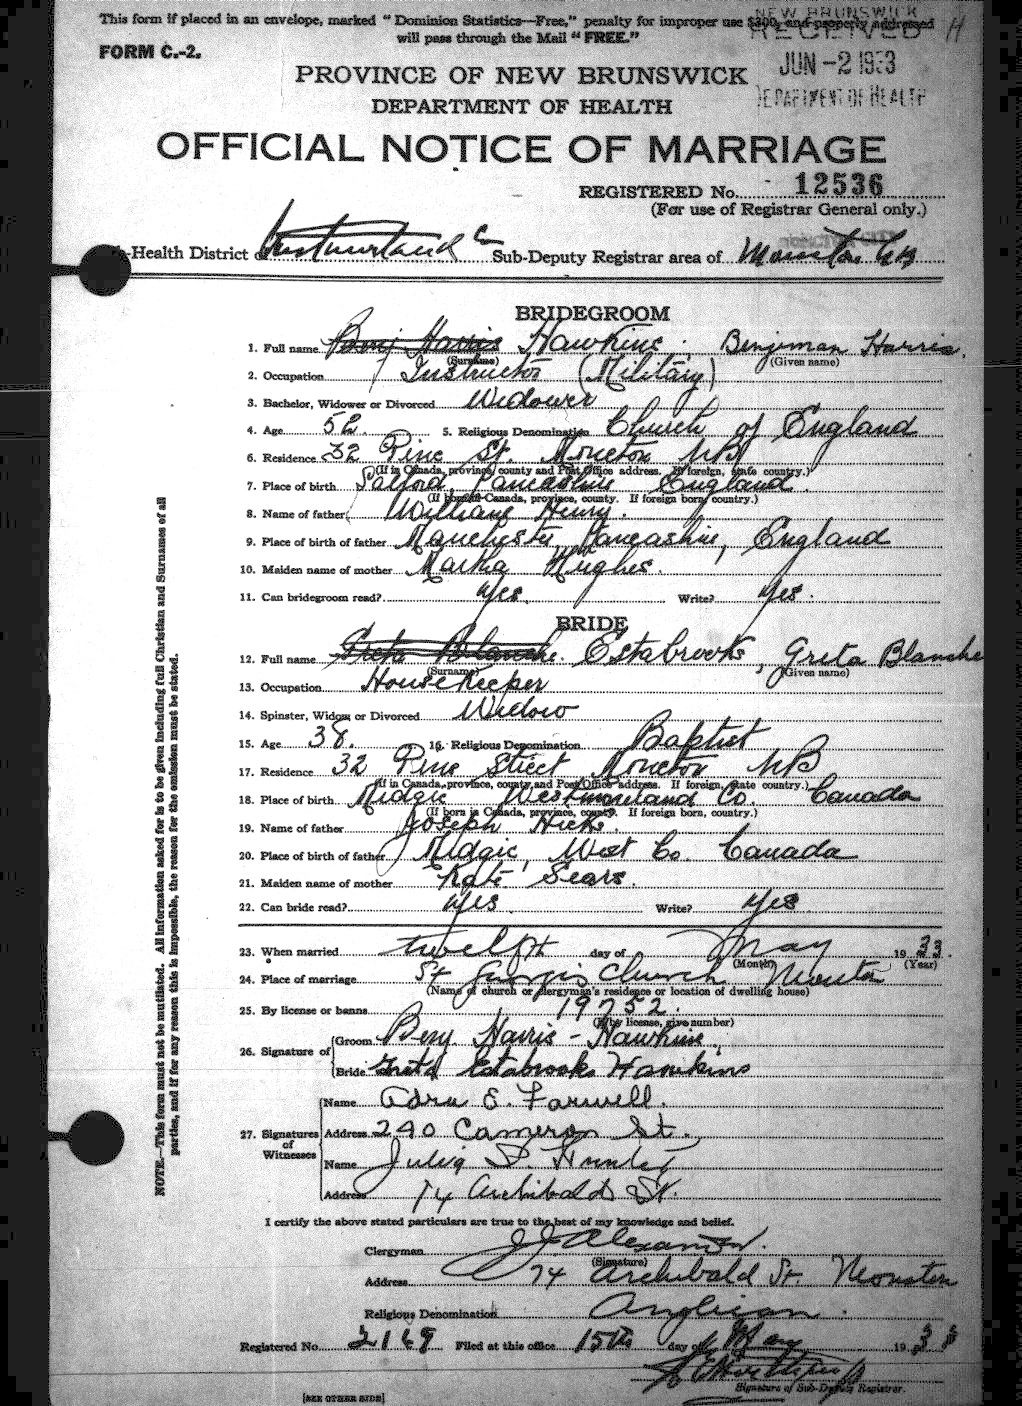 This form if placed in an envelope, marked "Dominion Statistics—Free," penalty for improper use $300, and properly addressed
will pass through the Mail "FREE."
NEW BRUNSWICK
RECEIVED
JUN -2 1933
DEPARTMENT OF HEALTH
H
FORM C.-2.
PROVINCE OF NEW BRUNSWICK
DEPARTMENT OF HEALTH
OFFICIAL NOTICE OF MARRIAGE
REGISTERED No. 12536
(For use of Registrar General only.)
-Health District of Westmorland Co Sub-Deputy Registrar area of Moncton City
BRIDEGROOM
1. Full name Benj Harris Hawkins. Benjiman Harris.
(Surname) (Given name)
2. Occupation Instructor (Military)
3. Bachelor, Widower or Divorced Widower
4. Age 52. 5. Religious Denomination Church of England
6. Residence 32 Pine St. Moncton NB
(If in Canada, province, county and Post Office address. If foreign, state country.)
7. Place of birth Salford, Lancashire England.
(If born in Canada, province, county. If foreign born, country.)
8. Name of father William Henry.
9. Place of birth of father Manchester, Lancashire, England
10. Maiden name of mother Martha Hughes.
11. Can bridegroom read? Yes. Write? Yes.
BRIDE
12. Full name Greta Blanche. Estabrooks, Greta Blanche
(Surname) (Given name)
13. Occupation Housekeeper
14. Spinster, Widow or Divorced Widow
15. Age 38. 16. Religious Denomination Baptist
17. Residence 32 Pine Street Moncton NB
(If in Canada, province, county, and Post Office address. If foreign, state country.)
18. Place of birth Midgic Westmoreland Co. Canada
(If born in Canada, province, county. If foreign born, country.)
19. Name of father Joseph Hicks.
20. Place of birth of father Midgic, West Co. Canada
21. Maiden name of mother Kate Sears.
22. Can bride read? Yes. Write? Yes.
23. When married twelfth day of May 1933.
(Month) (Year)
24. Place of marriage St Georges Church Moncton
(Name of church or clergyman's residence or location of dwelling house)
25. By license or banns 19752.
(If by license, give number)
26. Signature of Groom Benj Harris - Hawkins.
Bride Greta Estabrooks Hawkins
27. Signatures of Witnesses
Name E. Farwell.
Address 240 Cameron St.
Name Julia
Address 74 Archibald St.
I certify the above stated particulars are true to the best of my knowledge and belief.
Clergyman J. Alexander.
(Signature)
Address 74 Archibald St. Moncton
Religious Denomination Anglican.
Registered No. 2169 Filed at this office 15th day of May 1933
Signature of Sub-Deputy Registrar.
[SEE OTHER SIDE]
NOTE.—This form must not be mutilated. All information asked for is to be given including full Christian and Surnames of all
parties, and if for any reason this is impossible, the reason for the omission must be stated.